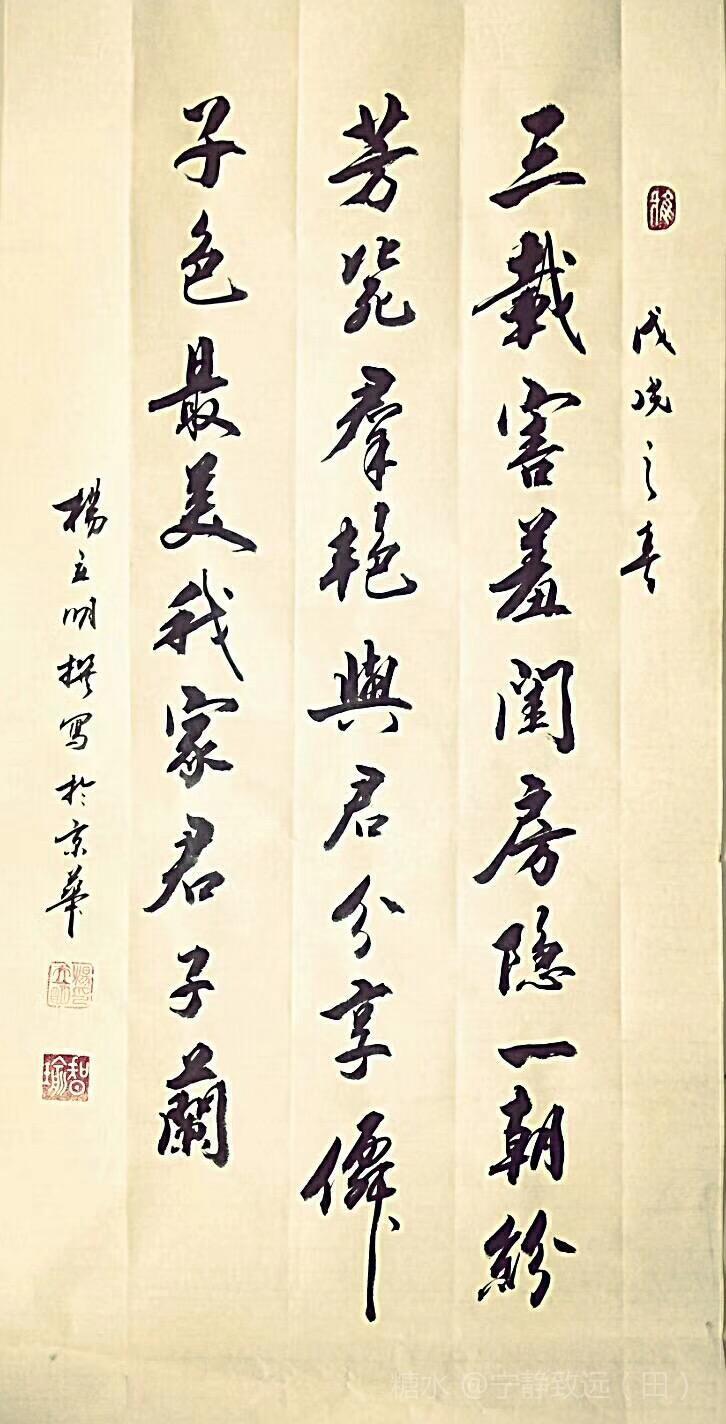 戊戌之春
三載害羞閨房隐一朝紛
芳毙羣艳與君分享
子色最美我家君子蘭
楊立明撰寫於京華
智瑜
糖水 @宁静致远（田）